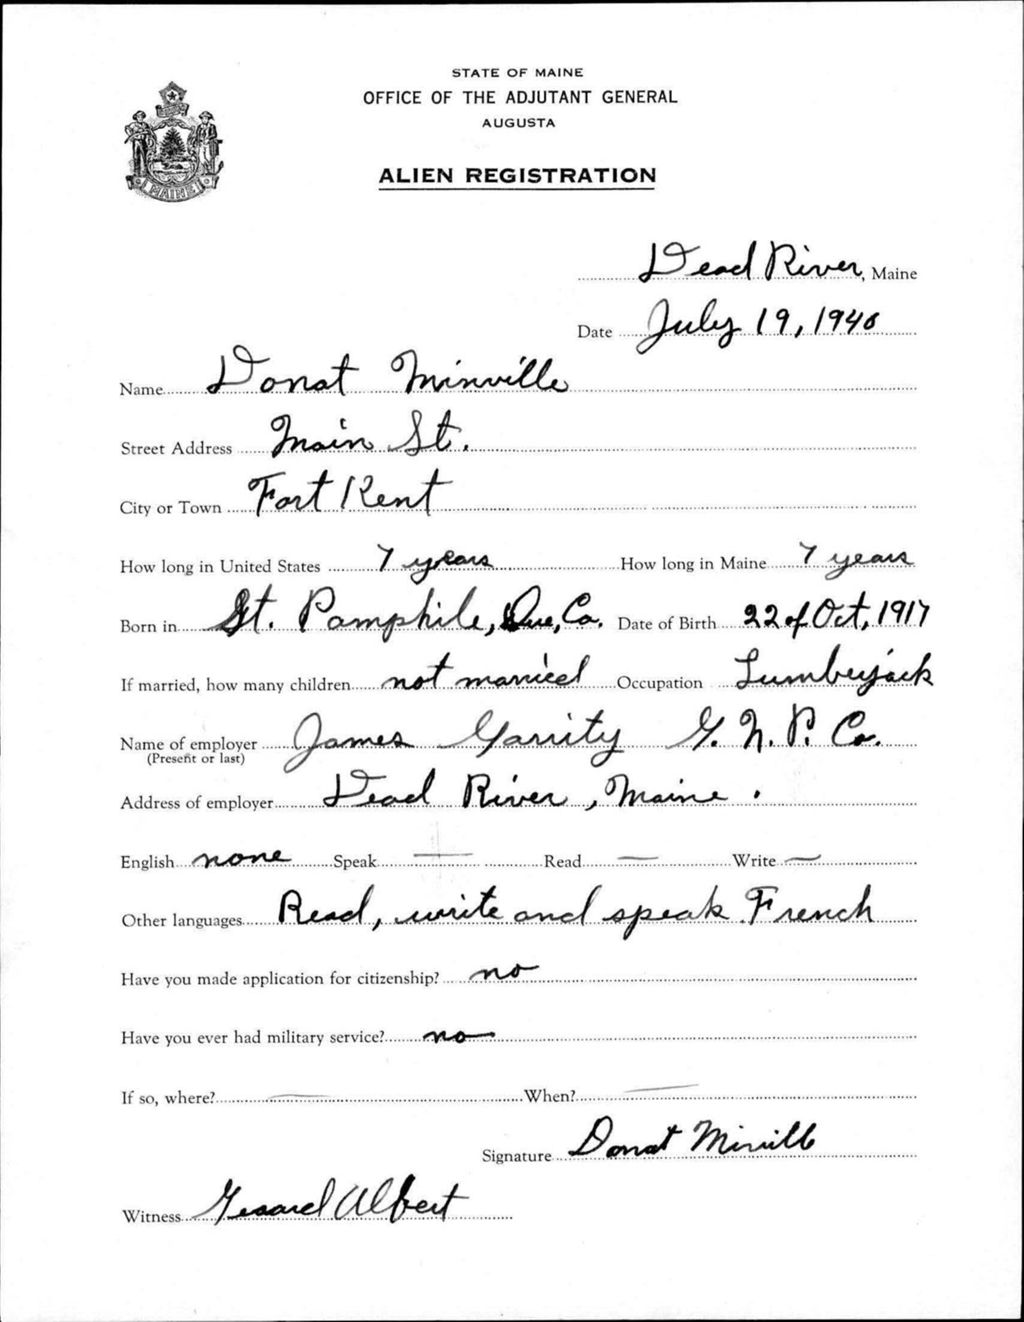 STATE OF MAINE
OFFICE OF THE ADJUTANT GENERAL
AUGUSTA
ALIEN REGISTRATION
MAINE
Dead River, Maine
Date July 19, 1940
Name Donat Minville
Street Address Main St.
City or Town Fort Kent
How long in United States 7 years How long in Maine 7 years
Born in St. Pamphile, Que, Ca. Date of Birth 22 of Oct, 1917
If married, how many children not married Occupation Lumberjack
Name of employer James Garrity G. N. P. Co.
(Present or last)
Address of employer Dead River, Maine.
English none Speak — Read — Write —
Other languages Read, write and speak French
Have you made application for citizenship? no
Have you ever had military service? no
If so, where? — When? —
Signature Donat Minville
Witness Gerard Albert